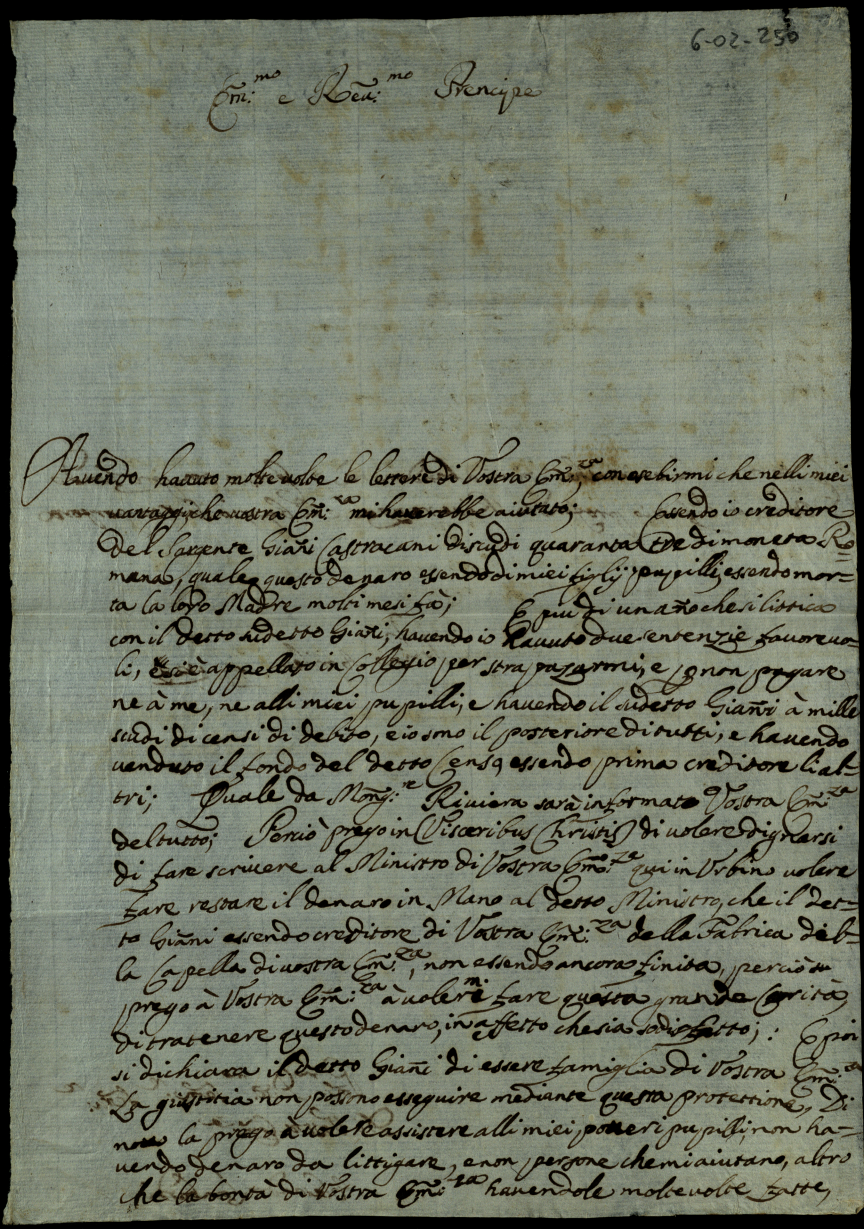 6-02-250
Em:mo e Reu:mo Prencipe
Auendo hauuto molte uolte le lettere di Vostra Em:za con esebirmi che nelli miei
uantaggi, che uostra Em:za mi hauerebbe aiutato; Essendo io creditore
del Sargente Giañi Castracani di scudi quaranta tre di moneta Ro=
mana, quale questo denaro essendo di miei figlij pupilli, essendo mor=
ta la loro Madre molti mesi fà; E piu di un año che si littica
con il detto sudetto Giañi, hauendo io hauuto due sentenzie fauoreuo=
li, e si è appellato in Collegio per strapazarmi, e non pagare
ne à me, ne alli miei pupilli, e hauendo il sudetto Giañi à mille
scudi di censi di debito, e io sono il posteriore di tutti, e hauendo
uenduto il fondo del detto Censo, essendo prima creditore li al=
tri; Quale da Mong:re Riviera sarà informato Vostra Em:za
del tutto; Perciò prego in (Visceribus Christi) di uolere dignarsi
di fare scriuere al Ministro di Vostra Em:za qui in Vrbino uolere
fare restare il denaro in Mano al detto Ministro, che il det=
to Giañi essendo creditore di Vostra Em:za della Fabrica del=
la Capella di uostra Em:za, non essendo ancora finita, perciò
prego à Vostra Em:za à uolermi fare questa grande Carità,
di tratenere questo denaro, in affetto che sia sodisfatto; : E poi
si dichiara il detto Giañi di essere famiglia di Vostra Em:za
La giustitia non possono esseguire mediante questa protettione, Di
nouo la prego à uolere assistere alli miei poueri pupilli, non ha=
uendo denaro da littigare, e non persone che mi aiutano, altro
che la bontà di Vostra Em:za hauendole molte uolte fatte,